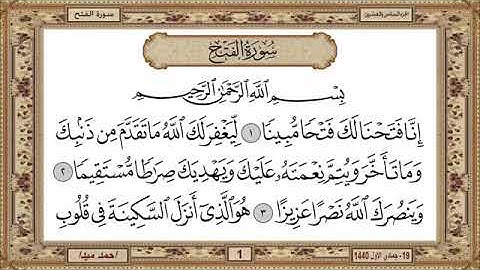 سورة الفتح
الجزء السادس والعشرون
سُورَةُ الفَتْحِ
بِسْمِ اللَّهِ الرَّحْمَٰنِ الرَّحِيمِ
إِنَّا فَتَحْنَا لَكَ فَتْحًا مُّبِينًا ١ لِّيَغْفِرَ لَكَ اللَّهُ مَا تَقَدَّمَ مِن ذَنۢبِكَ
وَمَا تَأَخَّرَ وَيُتِمَّ نِعْمَتَهُۥ عَلَيْكَ وَيَهْدِيَكَ صِرَٰطًا مُّسْتَقِيمًا ٢
وَيَنصُرَكَ اللَّهُ نَصْرًا عَزِيزًا ٣ هُوَ الَّذِىٓ أَنزَلَ السَّكِينَةَ فِى قُلُوبِ
19- جمادي الاول 1440
1
/حمد عيد/